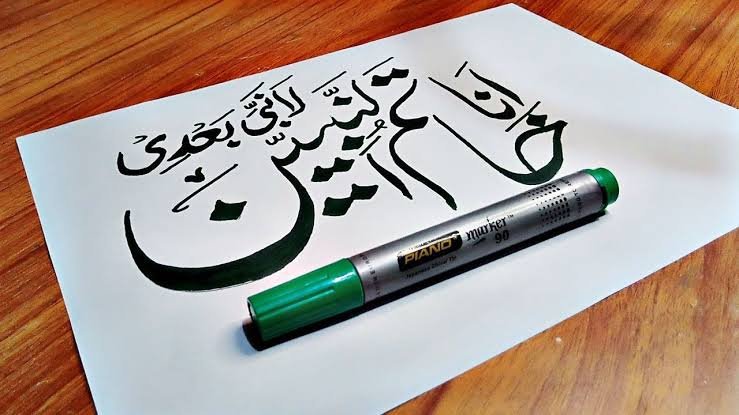 انا خاتم النبیّین لَا نَبِیَّ بَعْدِیْ
PIANO
marker™
90